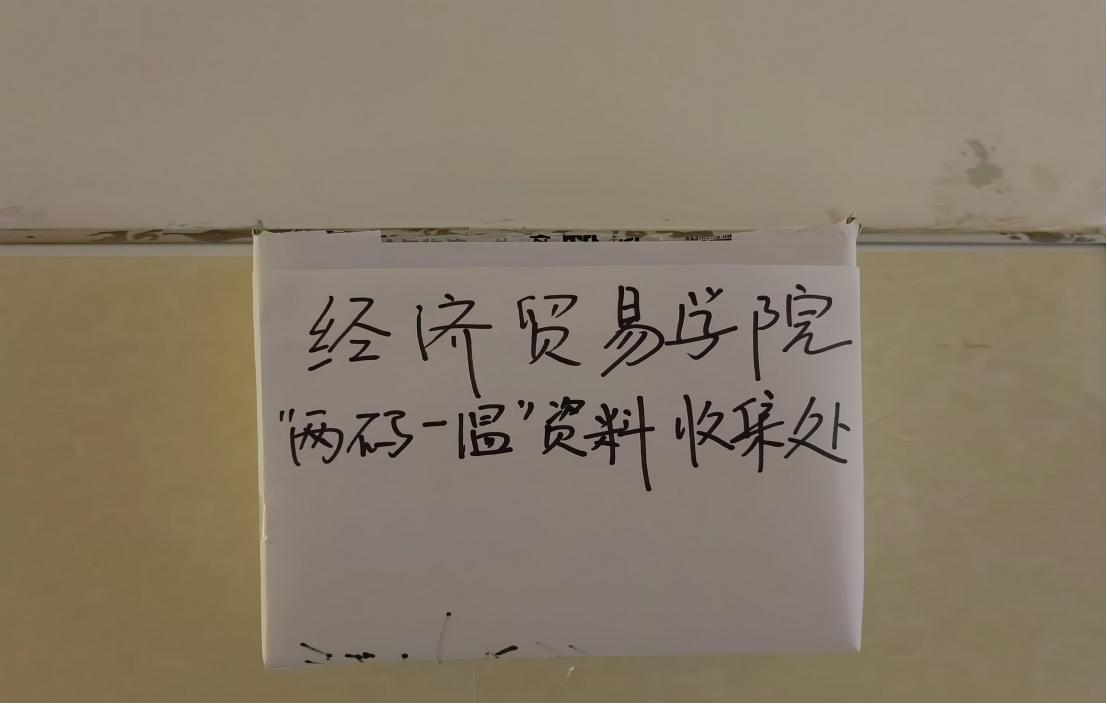 经济贸易学院
“两码一温”资料收集处